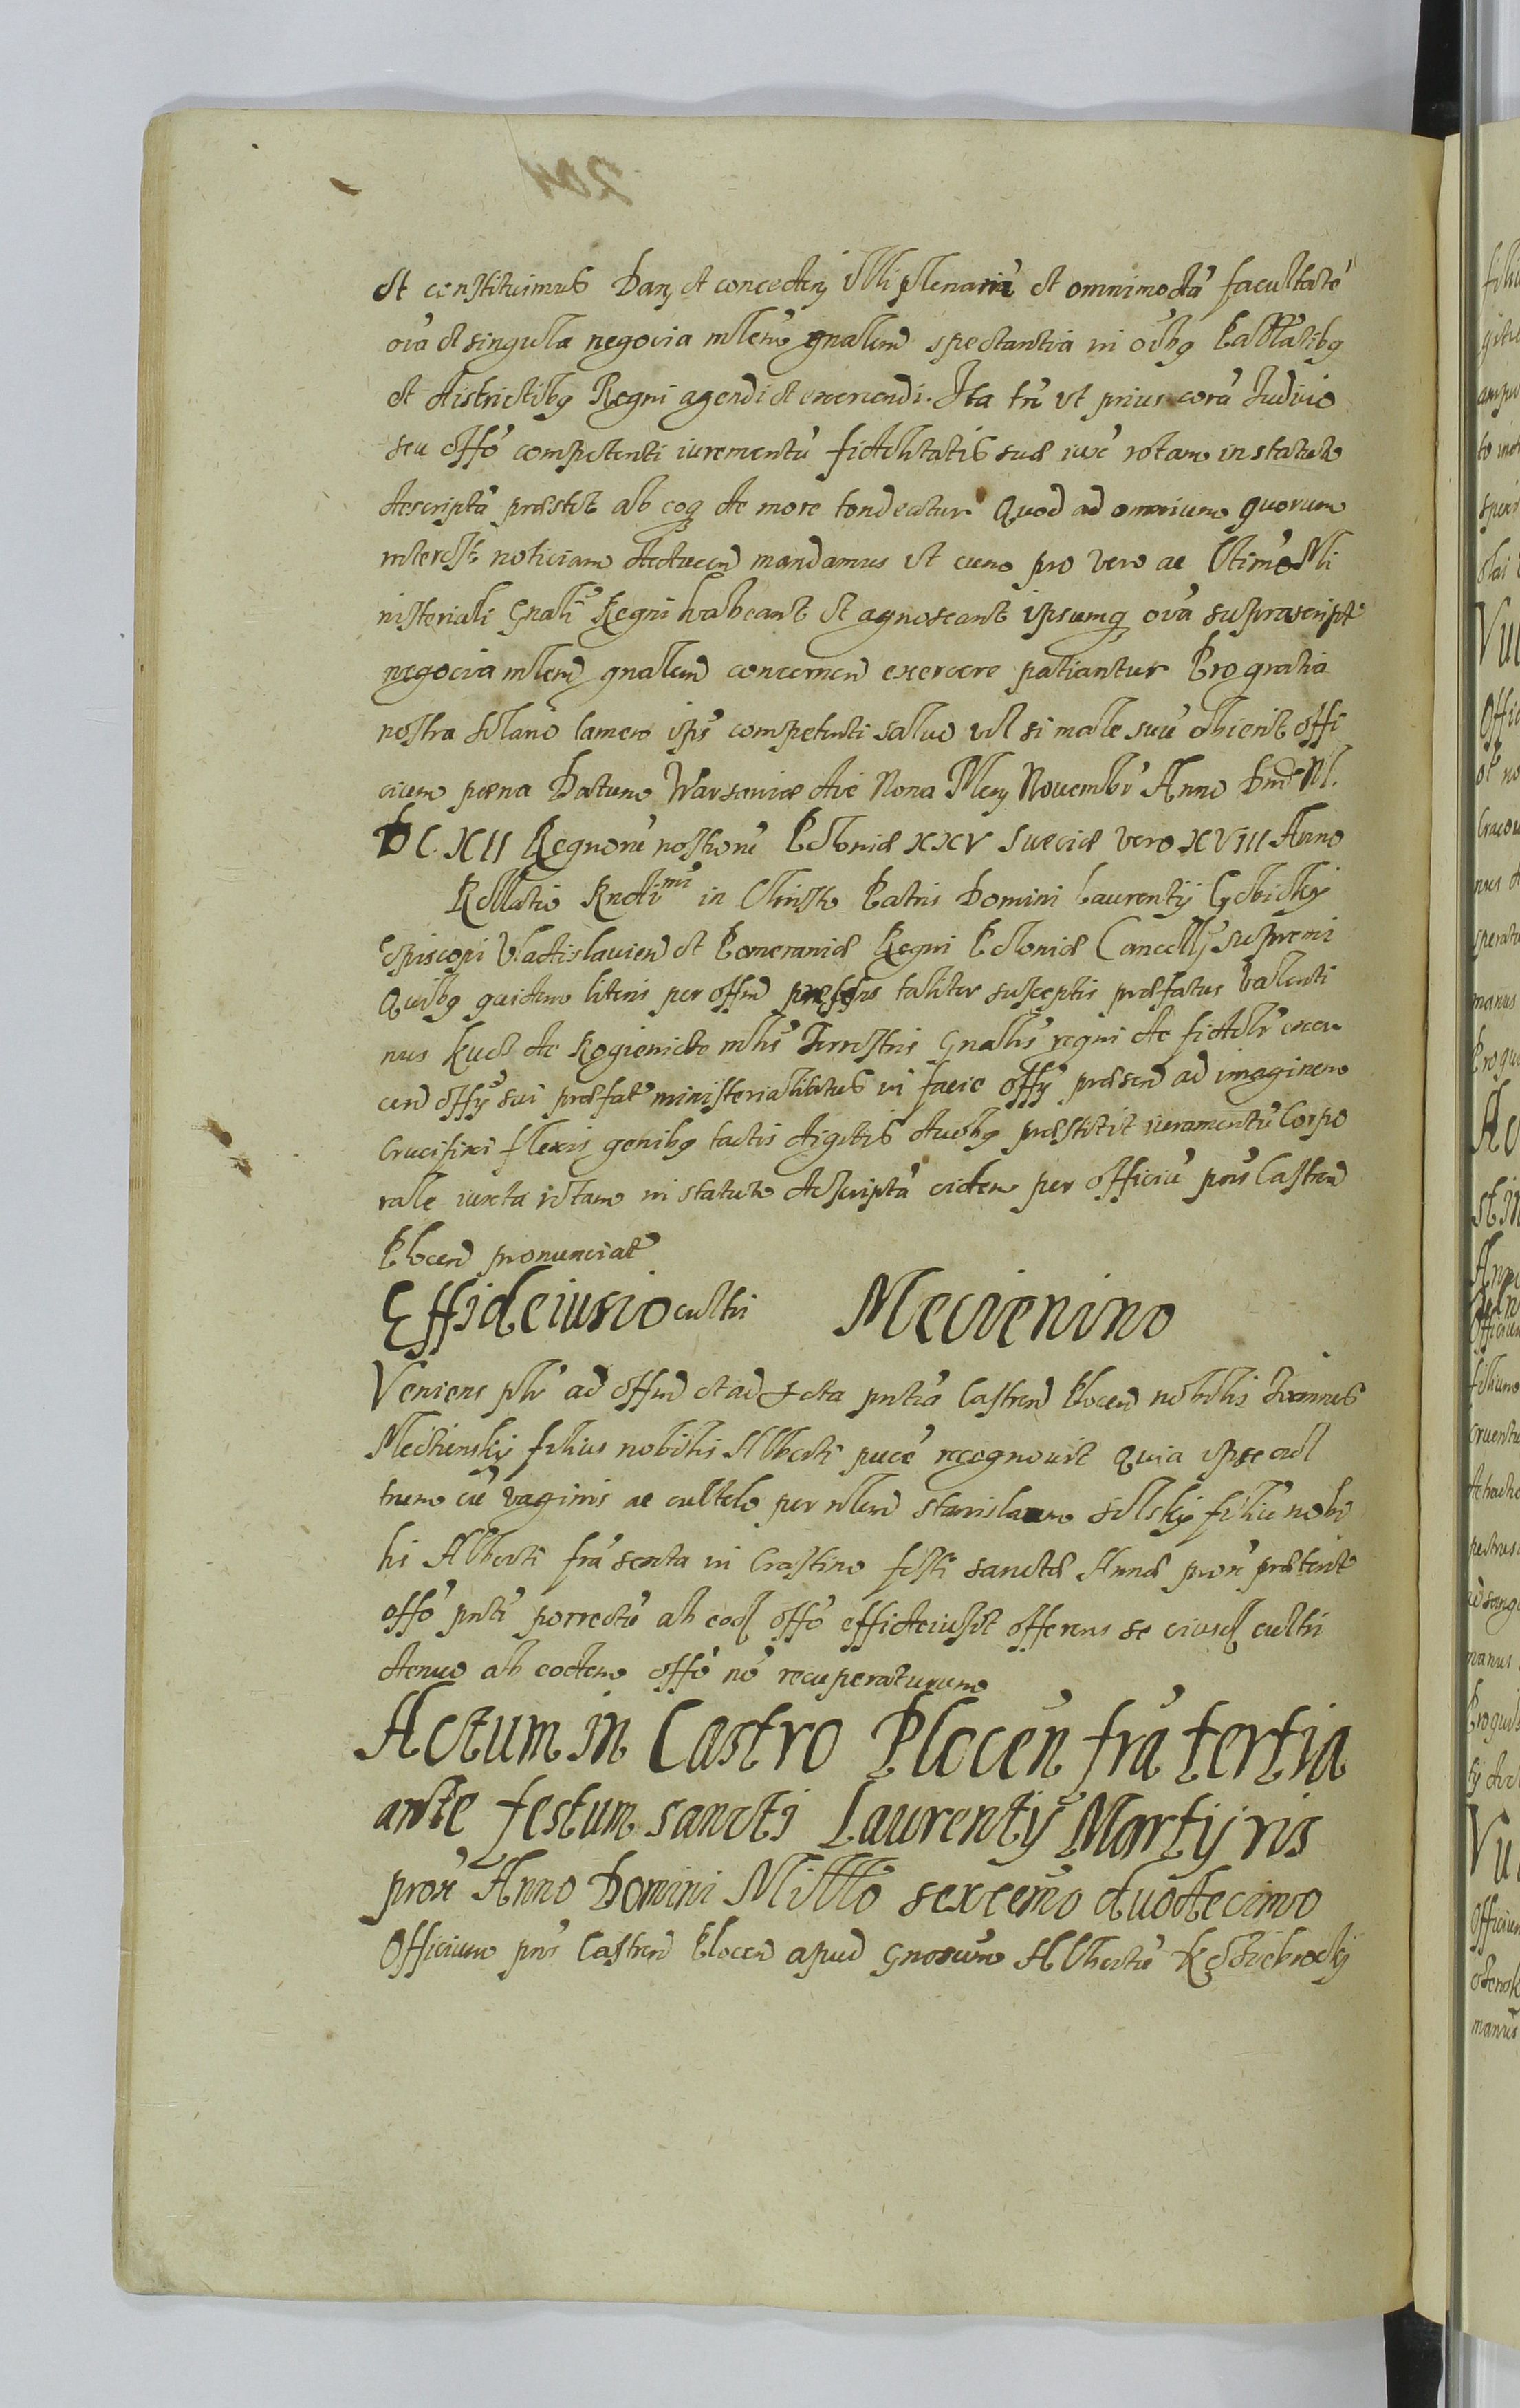 et constituimus Dan̄ et conceden̄ illi plenariā et omnimodā facultatē
oīa et singula negocia mlem̄ gnalem̄ spectantia in oībq Pallatibq
et districtibq Regni agendi et exercendi. Ita tn̄ ut prius corā Judicio
seu offō competenti iuramentū fidelitatis suæ iux̄ rotam in statuto
descriptā præstet ab eoq de more tondeatur Quod ad omnium quorum
interest noticiam deducen̄ mandamus ut eum pro vero ac ltimo Mi
nisteriali Gnali Regni habeant et agnoscant ipsumq oīa suprascript̄
negocia mlem̄ gnalem̄ concernen̄ exercere patiantur Pro gratia
nostra salario tamen ipsi competenti salvo vel si male suū obierit offi
cium pæna Datum Warsaviæ die Nona Men̄ Novembr̄ Anno Dnī M.
DC.XII Regnorū nostrorū Poloniæ XXV Sueciæ vero XVIII Anno
Rellatio Rndi mi in Christo Patris Domini Laurentij Gebickij
Episcopi Vladislavien̄ et Pomeraniæ Regni Poloniæ Cancellī supremi
Quibq quidem literis per offm̄ præsens taliter susceptis præfatus Valenti
nus Kucz de Rogienicze mlis Terrestris Gnalis regni de fidelr̄ exer
cen̄ offij sui præfat̄ ministerialitatus in facie offij præsen̄ ad imaginem
Crucifixi flexis genibq tactis digitis duobq præstitit iuramentū Corpo
rale iuxta rotam in statuto descriptā eidem per officiū pn̄s Castren̄
Plocen̄ pronunciat̄
Effideiusio cultri Mecienino
Veniens plr̄ ad offm̄ et ad Acta pn̄tia Castren̄ Plocen̄ nobilis Joannes
Mecienskij filius nobilis Alberti pucē recognovit Quia ipse cul
trum cū vaginis ac cultelo per nlem̄ Stanislaum Solskij filiū nobi
lis Alberti frā sexta in Crastino festi sanctæ Annæ prox̄ præterit̄
offō pn̄ti porrectū ab eod offō effideiusit offerens se eiusd cultri
denuo ab eodem offō nō recuperaturum
Actum in Castro Plocen̄ frā tertia
ante festum sancti Laurentij Martijris
prox̄ Anno Domini Millō sexcemo duodecimo
Officium pn̄s Castren̄ Plocen̄ apud Gnosum Albertū